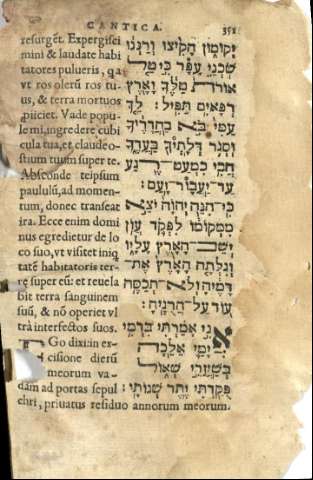 CANTICA. 351
resurgēt. Expergisci
mini & laudate habi
tatores pulueris, qa
vt ros olerū ros tu-
us, & terra mortuos
piiciet. Vade popu
le mi, ingredere cubi
cula tua, et claude o-
stium tuum super te.
Absconde teipsum
paululū, ad momen-
tum, donec transeat
ira. Ecce enim domi
nus egredietur de lo
co suo, vt visitet iniq
tatē habitatoris ter-
re super eū: et reuela
bit terra sanguinem
suū, & nō operiet vl
trà interfectos suos.
Go dixi in ex-
cisione dierū
meorum va-
dam ad portas sepul
chri, priuatus residuo annorum meorum.
יְקוּמוּן הָקִיצוּ וְרַנְּנוּ
שֹׁכְנֵי עָפָר כִּי טַל
אוֹרֹת טַלֶּךָ וָאָרֶץ
רְפָאִים תַּפִּיל׃ לֵךְ
עַמִּי בֹּא בַחֲדָרֶיךָ
וּסְגֹר דְּלָתְךָ בַּעֲדֶךָ
חֲבִי כִמְעַט רֶגַע
עַד יַעֲבָור זָעַם׃
כִּי הִנֵּה יְהוָה יֹצֵא
מִמְּקוֹמוֹ לִפְקֹד עֲוֹן
יֹשֵׁב הָאָרֶץ עָלָיו
וְגִלְּתָה הָאָרֶץ אֶת
דָּמֶיהָ וְלֹא תְכַסֶּה
עוֹד עַל הֲרוּגֶיהָ׃
אֲנִי אָמַרְתִּי בִּדְמִי
יָמַי אֵלֵכָה
בְּשַׁעֲרֵי שְׁאוֹל
פֻּקַּדְתִּי יֶתֶר שְׁנוֹתָי׃